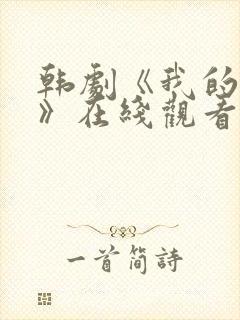 韩劇《我的
》在綫觀看
一首简詩